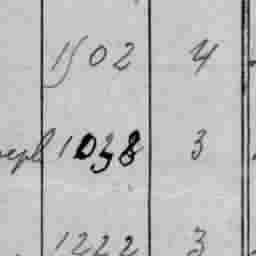 1502 4
1038 3
1222 3